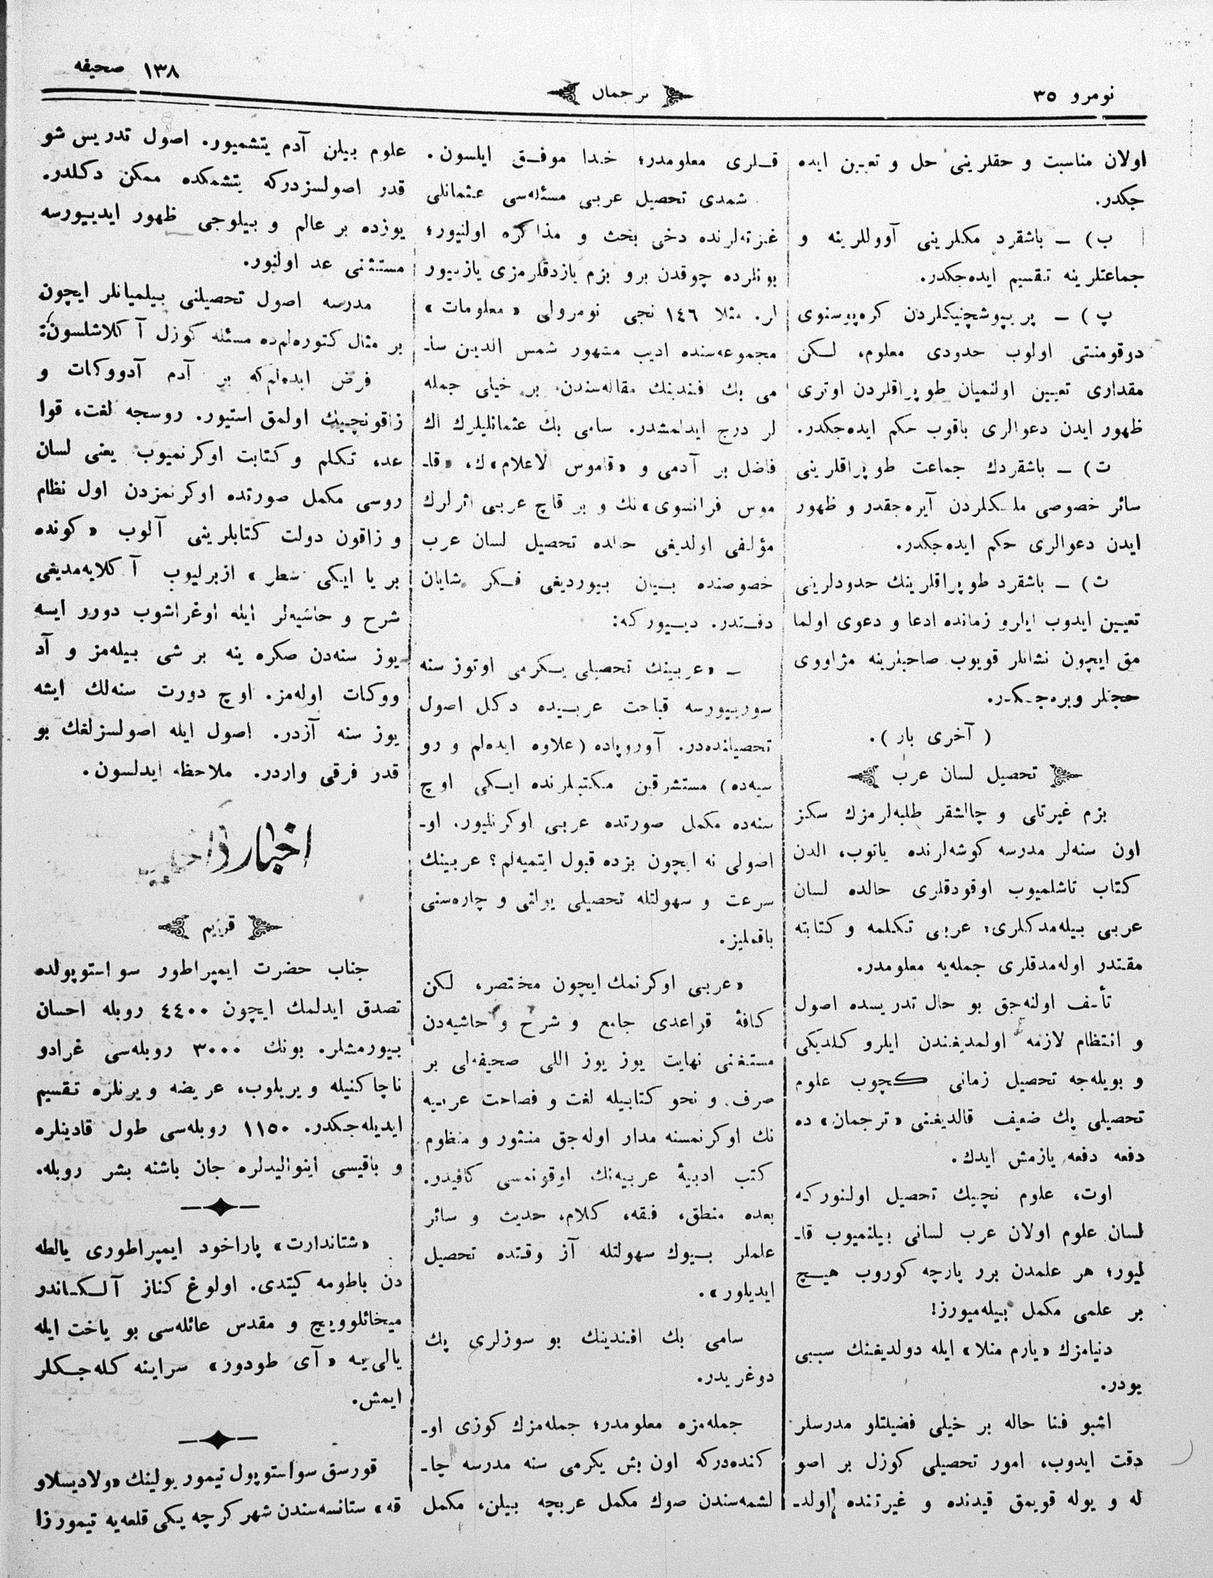 نومرو ٣٥
ترجمان
١٣٨ صحيفه
اولان مناسبت و حقلرينى حل و تعيين ايده
جكدر.
ب) ـ باشقرد مكلرينى آووللرينه و
جماعتلرينه تقسيم ايده‌جكدر.
پ) ـ پريپوشچنيكلردن كره‌پوستوى
دوقومنتى اولوب حدودى معلوم، لكن
مقدارى تعيين اولنميان طوپراقلردن اوترى
ظهور ايدن دعوالرى باقوب حكم ايده‌جكدر.
ت) ـ باشقردك جماعت طوپراقلرينى
سائر خصوصى ملكلردن آيره‌جقدر و ظهور
ايدن دعوالرى حكم ايده‌جكدر.
ث) ـ باشقرد طوپراقلرينك حدودلرينى
تعيين ايدوب ايلرو زمانده ادعا و دعوى اولما
مق ايچون نشانلر قويوب صاحبلرينه مژاووى
حجتلر ويره‌جكدر.
( آخرى بار ).
تحصيل لسان عرب
بزم غيرتلى و چالشقر طلبه‌لرمزك سكز
اون سنه‌لر مدرسه كوشه‌لرنده ياتوب، الدن
كتاب تاشلميوب اوقودقلرى حالده لسان
عربى بيله‌مدكلرى؛ عربى تكلمه و كتابته
مقتدر اوله‌مدقلرى جمله‌يه معلومدر.
تأسف اولنه‌جق بو حال تدريسده اصول
و انتظام لازمه اولمديغندن ايلرو كلديكى
و بويله‌جه تحصيل زمانى كچوب علوم
تحصيلى پك ضعيف قالديغنى «ترجمان» ده
دفعه دفعه يازمش ايدك.
اوت، علوم نچيك تحصيل اولنوركه
لسان علوم اولان عرب لسانى بيلنميوب قا‍ـ
ليور؛ هر علمدن برر پارچه كوروب هيچ
بر علمى مكمل بيله‌ميورز!
دنيامزك «يارم منلا» ايله دولديغنك سببى
بودر.
اشبو فنا حاله بر خيلى فضيلتلو مدرسلر
دقت ايدوب، امور تحصيلى كوزل بر اصو
له و يوله قويمق قيدنده و غيرتنده اولد‍ـ
قلرى معلومدر؛ خدا موفق ايلسون.
شمدى تحصيل عربى مسئله‌سى عثمانلى
غزته‌لرنده دخى بحث و مذاكره اولنيور؛
بونلرده چوقدن برو بزم يازدقلرمزى يازييور
لر. مثلا ١٤٦ نجى نومرولى «معلومات»
مجموعه‌سنده اديب مشهور شمس الدين سا‍ـ
مى بك فندينك مقاله‌سندن بر خيلى جمله
لر درج ايدلمشدر. سامى بك عثمانليلرك اك
فاضل بر آدمى و «قاموس الاعلام»ك، «قا‍ـ
موس فرانسوى»نك و بر قاچ عربى اثرلرك
مؤلفى اولديغى حالده تحصيل لسان عرب
خصوصنده بيان بيورديغى فكر شايان
دقتدر. دييوركه:
ـ «عربينك تحصيلى يكرمى اوتوز سنه
سورييورسه قباحت عربيده دكل اصول
تحصيلنده‌در. آوروپاده (علاوه ايده‌لم و رو
سيه‌ده) مستشرقين مكتبلرنده ايكى اوچ
سنه‌ده مكمل صورتده عربى اوكرنليور. او
اصولى نه ايچون بزده قبول ايتميه‌لم؟ عربينك
سرعت و سهولتله تحصيلى يولنى و چاره‌سنى
باقمليز.
«عربى اوكرنمك ايچون مختصر، لكن
كافهٔ قواعدى جامع و شرح و حاشيه‌دن
مستغنى نهايت يوز يوز اللى صحيفه‌لى بر
صرف و نحو كتابيله لغت و فصاحت عربيه
نك اوكرنمسنه مدار اوله‌جق منثور و منظوم
كتب ادبيهٔ عربيه‌نك اوقونمسى كافيدر.
بعده منطق، فقه، كلام، حديث و سائر
علملر بيوك سهولتله آز وقتده تحصيل
ايديلور».
سامى بك افندينك بو سوزلرى پك
دوغريدر.
جمله‌مزه معلومدر؛ جمله‌مزك كوزى او‍ـ
كنده‌دركه اون بش يكرمى سنه مدرسه چا‍ـ
لشمه‌سندن صوك مكمل عربچه بيلن، مكمل
علوم بيلن آدم يتشميور. اصول تدريس شو
قدر اصولسزدركه يتشمكده ممكن دكلدر.
يوزده بر عالم و بيلوجى ظهور ايدييورسه
مستثنى عد اولنور.
مدرسه اصول تحصيلنى بيلميانلر ايچون
بر مثال كتوره‌لم‌ده مسئله كوزل آكلاشلسون:
فرض ايده‌لم‌كه بر آدم آدووكات و
زاقونچيك اولمق استيور. روسجه لغت، قوا
عد، تكلم و كتابت اوكرنميوب يعنى لسان
روسى مكمل صورتده اوكرنمزدن اول نظام
و زاقون دولت كتابلرينى آلوب «كونده
بر يا ايكى سطر» ازبرليوب آكلايه‌مديغى
شرح و حاشيه‌لر ايله اوغراشوب دورر ايسه
يوز سنه‌دن صكره ينه بر شى بيله‌مز و آد
ووكات اوله‌مز. اوچ دورت سنه‌لك ايشه
يوز سنه آزدر. اصول ايله اصولسزلغك بو
قدر فرقى واردر. ملاحظه ايدلسون.
اخبار داخليه
قريم
جناب حضرت ايمپراطور سواستوپولده
تصدق ايدلمك ايچون ٤٤٠٠ روبله احسان
بيورمشلر. بونك ٣٠٠٠ روبله‌سى غرادو
ناچاكنيله ويريلوب، عريضه ويرنلره تقسيم
ايديله‌جكدر. ١١٥٠ روبله‌سى طول قادينلره
و باقيسى اينواليدلره جان باشنه بشر روبله.
«شتاندارت» پاراخود ايمپراطورى يالطه
دن باطومه كيتدى. اولوغ كناز آلكساندر
ميخائلوويچ و مقدس عائله‌سى بو ياخت ايله
يالى‌يه «آى طودور» سراينه كله‌جكلر
ايمش.
قورسق سواستوپول تيمور يولينك «ولاديسلاو
قه» ستانسه‌سندن شهر كرچه يكى قلعه‌يه تيمورزا